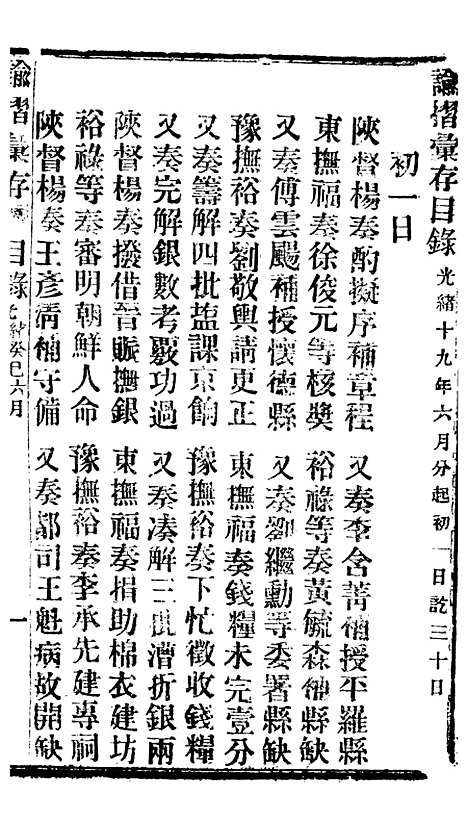 諭摺彙存目錄 光緒十九年六月分起初一日訖三十日
初一日
陝督楊奏酌擬序補章程 又奏李含菁補授平羅縣
東撫福奏徐俊元等核獎 裕祿等奏黃毓森補縣缺
又奏傅雲颺補授懷德縣 又奏劉繼勳等委署縣缺
豫撫裕奏劉敬輿請更正 東撫福奏錢糧未完壹分
又奏籌解四批鹽課京餉 豫撫裕奏下忙徵收錢糧
又奏完解銀數考覈功過 又奏湊解三批漕折銀兩
陝督楊奏撥借晉賑撫銀 東撫福奏捐助棉衣建坊
裕祿等奏審明朝鮮人命 豫撫裕奏李承先建專祠
陝督楊奏王彥清補守備 又奏都司王魁病故開缺
諭摺彙存 目錄 光緒癸巳六月 一